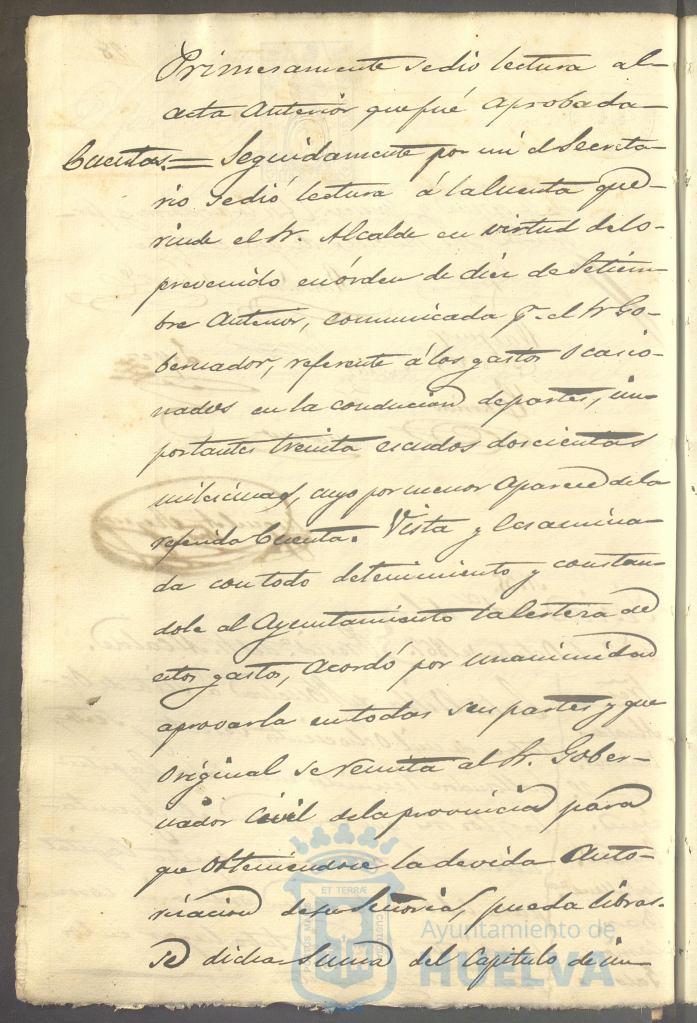 Primeramente se dio lectura al
acta Anterior que fué aprobada
Cuentas.= Seguidamente por mi el Secreta-
rio se dió lectura á la Cuenta que
rinde el Sr. Alcalde en virtud de lo
prevenido en órden de diez de Setiem-
bre Anterior, comunicada pr. el Sr Go-
bernador, referente á los gastos Ocacio-
nados en la conducion de partes, im-
portantes treinta escudos doscientas
milesimas, cuyo por menor Aparece de la
referida Cuenta. Vista y Ecsamina-
da con todo detenimiento y constan-
dole al Ayuntamiento la certeza de
estos gastos, Acordó por Unanimidad
aprovarla en todas sus partes y que
Original se remita al Sr. Gober-
nador Civil de la provincia para
que Obteniendose la devida Auto-
rizacion de su Señoria, pueda librar-
se dicha Suma del Capitulo de im-
ET TERRÆ
CUSTODIA
Ayuntamiento de
HUELVA